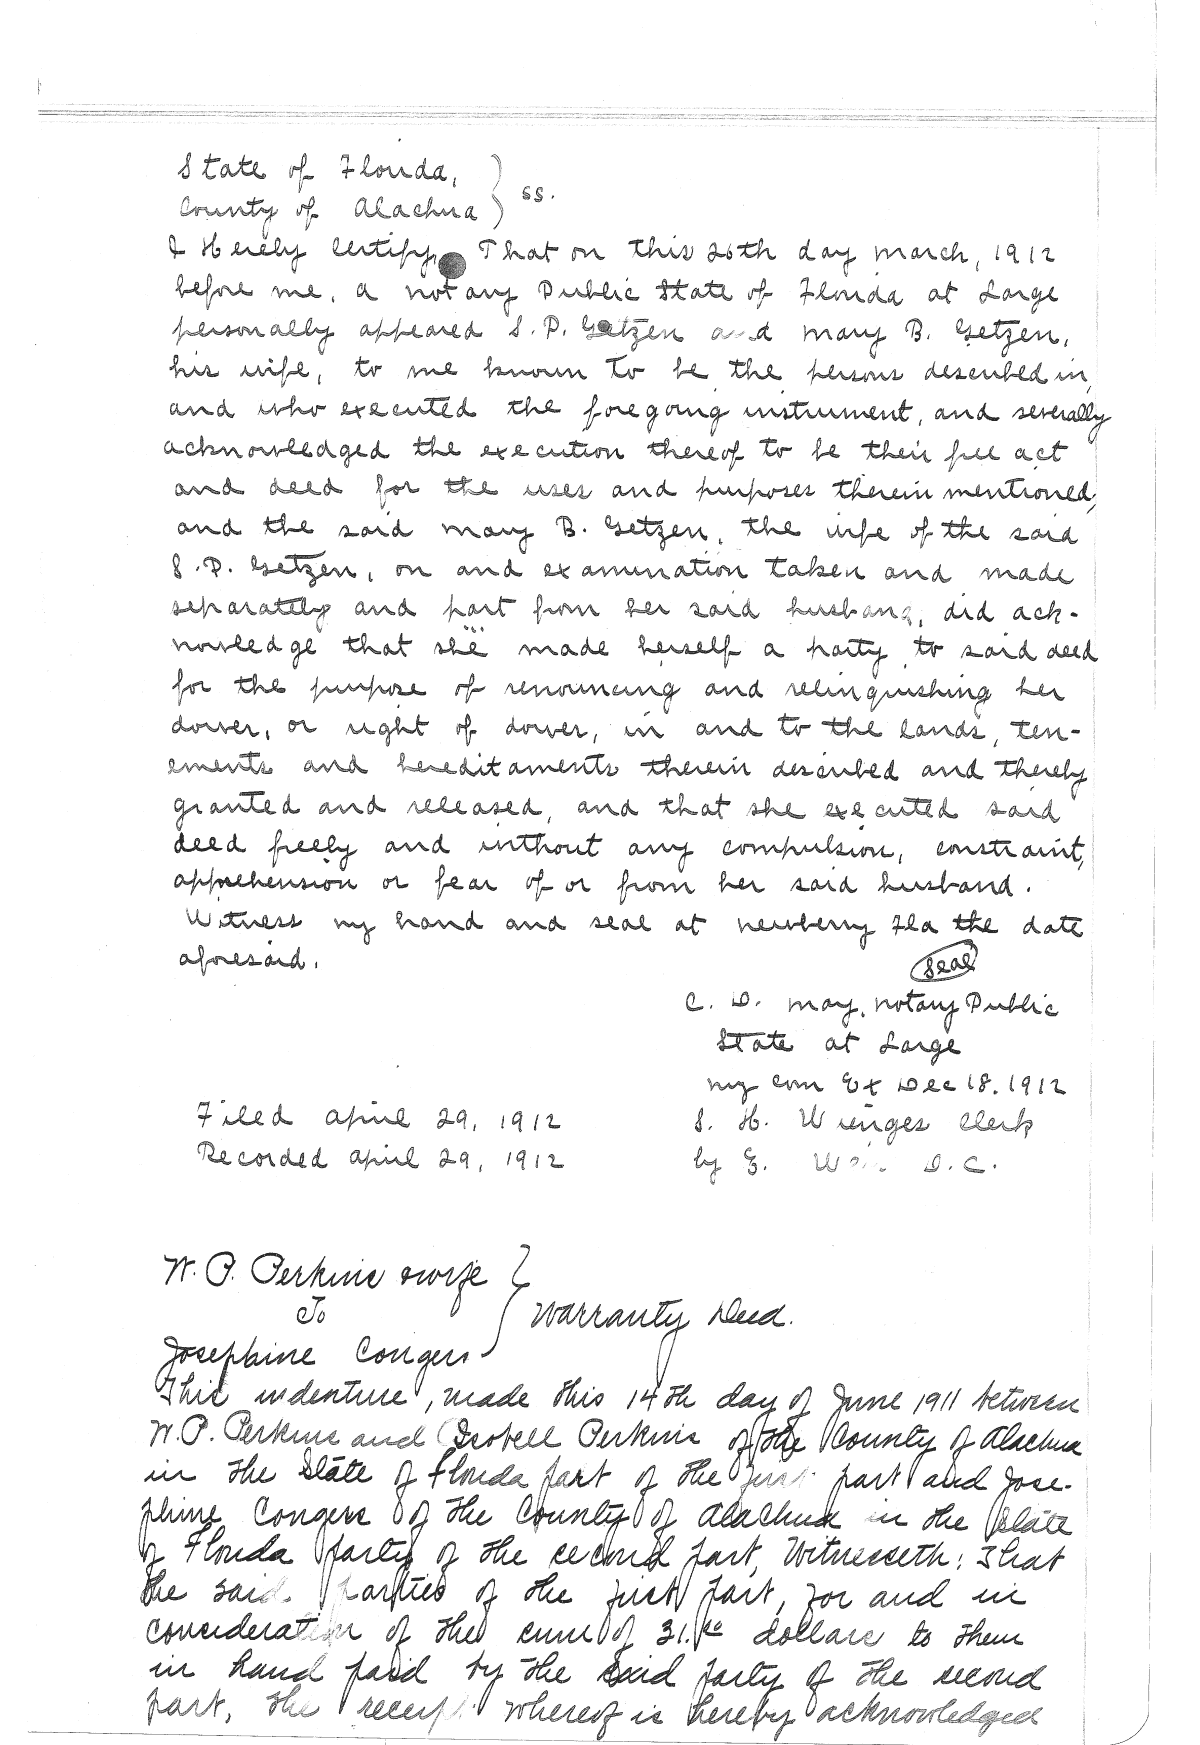 State of Florida,
County of Alachua } ss.
I Hereby Certify, That on this 26th day march, 1912
before me, a notary Public State of Florida at Large
personally appeared S. P. Getzen and Mary B. Getzen,
his wife, to me known to be the persons described in,
and who executed the foregoing instrument, and severally
acknowledged the execution thereof to be their free act
and deed for the uses and purposes therein mentioned,
and the said Mary B. Getzen, the wife of the said
S. P. Getzen, on and examination taken and made
separately and part from her said husband, did ack-
nowledge that she made herself a party to said deed
for the purpose of renouncing and relinquishing her
dower, or right of dower, in and to the lands, ten-
ements and hereditaments therein described and thereby
granted and released, and that she executed said
deed freely and without any compulsion, constraint,
apprehension or fear of or from her said husband.
Witness my hand and seal at newberry Fla the date
aforesaid.
Seal
C. D. May, notary Public
State at Large
my com Ex Dec 18. 1912
Filed april 29, 1912 S. H. Wienges Clerk
Recorded april 29, 1912 by E. D.C.
W. P. Perkins & wife
To
Warranty Deed.
Josephine Congers
This indenture, made this 14th day of June 1911 between
W. P. Perkins and Isobell Perkins of the County of Alachua
in the State of Florida part of the first part and Jose-
phine Congers of the County of Alachua in the State
of Florida party of the second part, Witnesseth: That
the said parties of the first part, for and in
consideration of the sum of 31.00 dollars to them
in hand paid by the said party of the second
part, the receipt whereof is hereby acknowledged